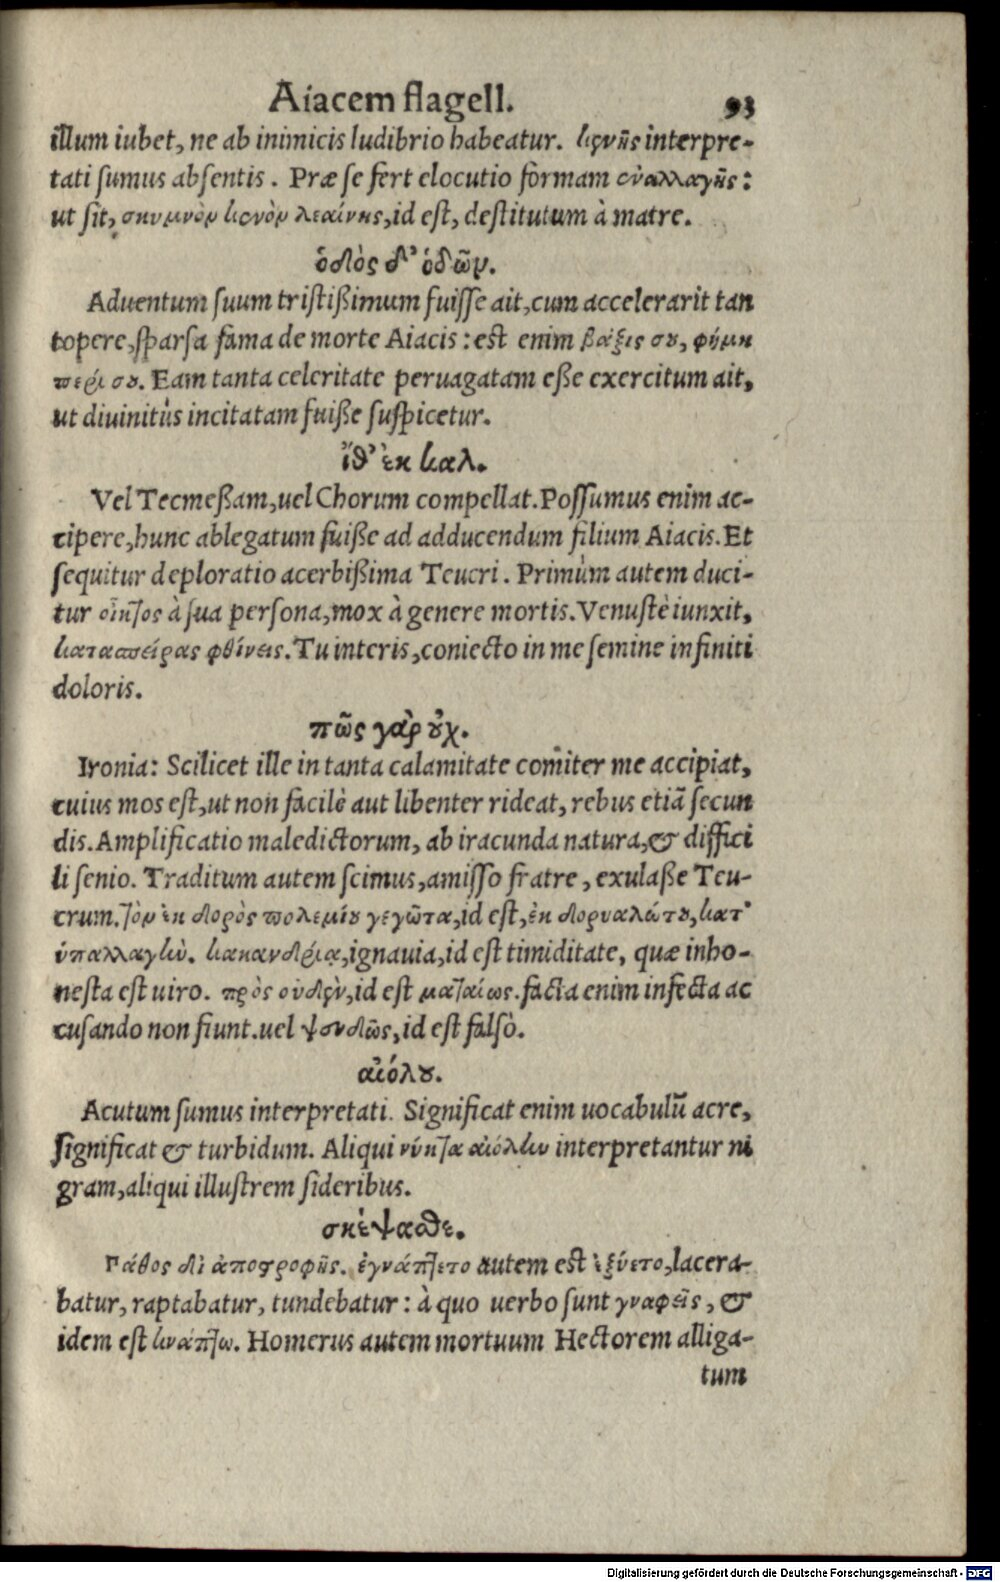 Aiacem flagell. 93
illum iubet, ne ab inimicis ludibrio habeatur. κενῆς interpre-
tati sumus absentis. Præ se fert elocutio formam ἐναλλαγῆς:
ut sit, σκυμνὸν κενὸν λεαίνης, id est, destitutum à matre.
ὁδὸς δ' ὁδῶν.
Aduentum suum tristißimum fuisse ait, cum accelerarit tan
topere, sparsa fama de morte Aiacis: est enim βάξις σου, φήμη
περί σου. Eam tanta celeritate peruagatam eße exercitum ait,
ut diuinitùs incitatam fuiße suspicetur.
ἴθ' ἐκ καλ.
Vel Tecmeßam, uel Chorum compellat. Possumus enim ac-
cipere, hunc ablegatum fuiße ad adducendum filium Aiacis. Et
sequitur deploratio acerbißima Teucri. Primùm autem duci-
tur οἶκτος à sua persona, mox à genere mortis. Venustè iunxit,
κατασπείρας φθίνεις. Tu interis, coniecto in me semine infiniti
doloris.
πῶς γὰρ οὐχ.
Ironia: Scilicet ille in tanta calamitate comiter me accipiat,
cuius mos est, ut non facilè aut libenter rideat, rebus etiā secun
dis. Amplificatio maledictorum, ab iracunda natura, & diffici
li senio. Traditum autem scimus, amisso fratre, exulaße Teu-
crum. τὸν ἐκ δορὸς πολεμίου γεγῶτα, id est, ἐκ δορυαλώτου, κατ'
ὑπαλλαγὴν. κακανδρία, ignauia, id est timiditate, quæ inho-
nesta est uiro. πρὸς οὐδὲν, id est ματαίως. facta enim infecta ac
cusando non fiunt. uel ψευδῶς, id est falsò.
αἰόλου.
Acutum sumus interpretati. Significat enim uocabulū acre,
significat & turbidum. Aliqui νύκτα αἰόλην interpretantur ni
gram, aliqui illustrem sideribus.
σκέψασθε.
Πάθος δι' ἀποστροφῆς. ἐγνάπτετο autem est ἐξύετο, lacera-
batur, raptabatur, tundebatur: à quo uerbo sunt γναφεῖς, &
idem est κνάπτω. Homerus autem mortuum Hectorem alliga-
tum
Digitalisierung gefördert durch die Deutsche Forschungsgemeinschaft - DFG